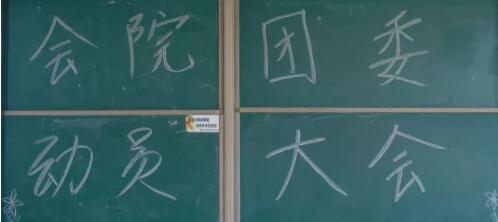 会院 团委
动员 大会